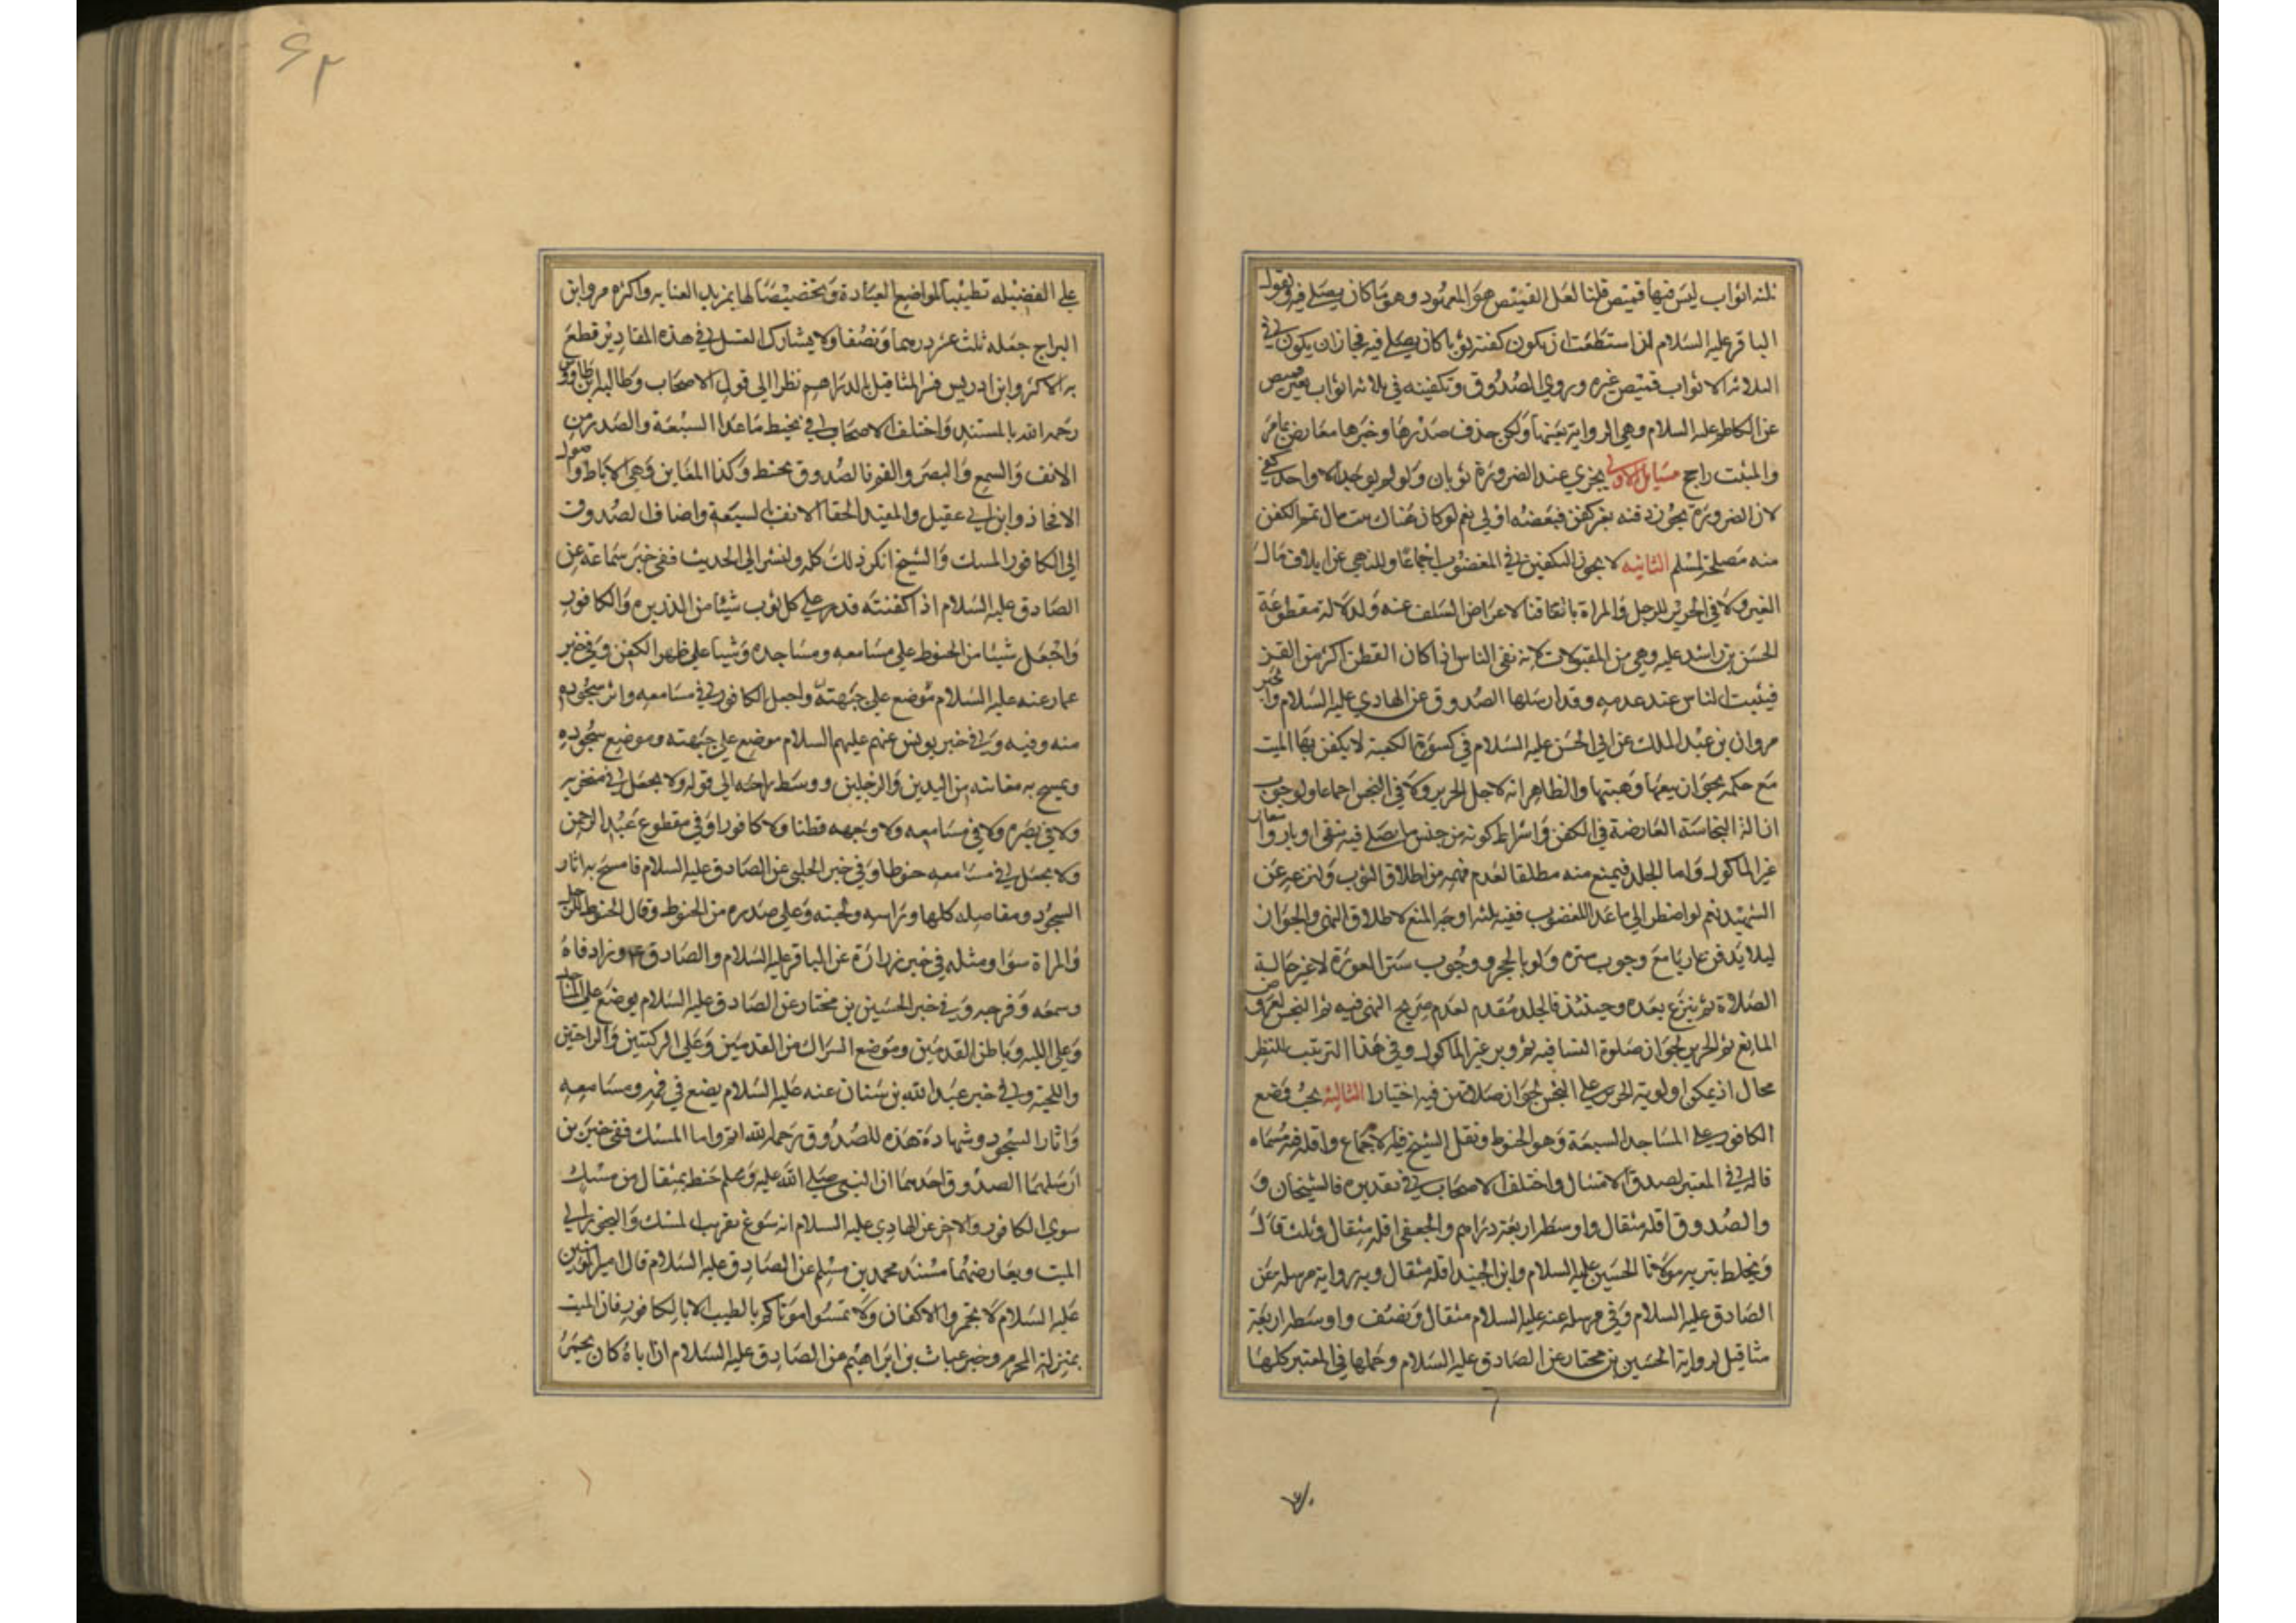 ثلثه اثواب ليس فيها قميص قلنا لعل القميص هو المعهود وهو ما كان يصلي فيه ويقول
الباقر عليه السلام ان استطعت ان يكون كفنه ثوبا كان يصلي فيه فجاز ان يكون في
الثلاثه الاثواب قميص غيره وروي الصدوق وتكفينه في ثلاثه اثواب بغير قميص
عن الكاظم عليه السلام وهي الرواية بعينها ولكن حذف صدرها وخبرها معارض بما مر
والمثبت راجح مسايل الاولي يجزي عند الضرورة ثوبان ولو لم يوجد الا واحد كفي
لان الضرورة تجوز دفنه بغير كفن فبعضه اولي نعم لو كان هناك بيت مال تمم الكفن
منه مصلحة لمسلم الثانيه لا يجوز التكفين في المغضوب اجماعا وللنهي عن اتلاف مال
الغير ولا في الحرير للرجل والمراة باتفاقنا لاعراض السلف عنه ولدلالة مقطوعة
الحسن بن راشد عليه وهي من المقبولات لانه نفي الباس اذا كان القطن اكثر من القز
فيثبت الباس عند عدمه وقد ارسلها الصدوق عن الهادي عليه السلام وخبر
مروان بن عبد الملك عن ابي الحسن عليه السلام في كسوة الكعبة لا يكفن بها الميت
مع حكمه بجواز بيعها وهبتها والظاهر انه لاجل الحرير ولا في النجس اجماعا ولوجوب
ازالة النجاسة العارضة في الكفن واشتراط كونه من جنس ما يصلي فيه ينفي اوبار واشعار
غير الماكول واما الجلد فيمنع منه مطلقا لعدم فهمه من اطلاق الثوب ولنزعه عن
الشهيد نعم لو اضطر الي ما عدا المغضوب ففيه ثلثه اوجه المنع لاطلاق النهي والجواز
ليلا يدفن عاريا مع وجوب ستره ولو بالحجر ووجوب ستر العورة لا غير حالة
الصلاة ثم ينزع بعده وحينئذ فالجلد مقدم لعدم صريح النهي فيه ثم النجس لعروض
المانع ثم الحرير لجواز صلوة النسا فيه ثم وبر غير الماكول وفي هذا الترتيب للنظر
مجال اذ يمكن اولوية الحرير علي النجس لجواز صلاتهن فيه اختيارا الثالثه يجب وضع
الكافور علي المساجد السبعة وهو الحنوط ونقل الشيخ فيه الاجماع واقله مسماه
قاله في المعتبر لصدق الامتثال واختلف الاصحاب في تقديره فالشيخان و
والصدوق اقله مثقال واوسطه اربعة دراهم والجعفي اقله مثقال وثلث قال
ويخلط بتربه مولانا الحسين عليه السلام وابن الجنيد اقله مثقال وبه رواية مرسله عن
الصادق عليه السلام وفي مرسله عنه عليه السلام مثقال ونصف واوسطه اربعة
مثاقيل لرواية الحسين بن مختار عن الصادق عليه السلام وحملها في المعتبر كلها
٦٢
علي الفضيله تطييبا لمواضع العبادة وتخصيصا لها بمزيد العنايه واكثره مر وابن
البراج جعله ثلث عشر درهما ونصفا ولا يشارك الغسل في هذه المقادير قطع
به الاكثر وابن ادريس فسر المثاقيل بالدراهم نظرا الي قول الاصحاب وطالبه ابن طاووس
رحمه الله بالمستند واختلف الاصحاب في تحنيط ما عدا السبعة والصدر من
الانف والسمع والبصر والفم فالصدوق يحنط وكذا المغابن وهي الاباط واصول
الافخاذ وابن ابي عقيل والمفيد الحقا الانف بالسبعة واضاف الصدوق
الي الكافور المسك والشيخ انكر ذلك كله ولنشر الي الحديث ففي خبر سماعة عن
الصادق عليه السلام اذا كفنته فذر علي كل ثوب شيئا من الذريره والكافور
واجعل شيئا من الحنوط علي مسامعه ومساجده وشيئا علي ظهر الكفن وفي خبر
عمار عنه عليه السلام موضع علي جبهته واجعل الكافور في مسامعه واثر سجوده
منه وفيه وفي خبر يونس عنهم عليهم السلام موضع علي جبهته وموضع سجوده
ويمسح به مغابنه من اليدين والرجلين ووسط راحته الي قوله ولا يجعل في منخريه
ولا في بصره ولا في مسامعه ولا وجهه قطنا ولا كافورا وفي مقطوع عبد الرحمن
ولا يجعل في مسامعه حنوطا وفي خبر الحلبي عن الصادق عليه السلام فامسح به اثار
السجود ومفاصله كلها وراسه ولحيته وعلي صدره من الحنوط وقال الحنوط للرجل
والمراة سوا ومثله في خبر زرارة عن الباقر عليه السلام والصادق ع وزاد فاه
وسمعه وفرجه وفي خبر الحسين بن مختار عن الصادق عليه السلام يوضع علي المساجد
وعلي اللبه وباطن القدمين وموضع الشراك من القدمين وعلي الركبتين والراحتين
واللحية وفي خبر عبد الله بن سنان عنه عليه السلام يضع في فمه ومسامعه
واثار السجود وشهادة هذه للصدوق رحمه الله اتم واما المسك ففي خبرين
ارسلهما الصدوق احدهما ان النبي صلي الله عليه وسلم حنط بمثقال من مسك
سوي الكافور والاخر عن الهادي عليه السلام انه سوغ تقريب المسك والبخور الي
الميت ويعارضهما مسند محمد بن مسلم عن الصادق عليه السلام قال امير المؤمنين
عليه السلام لا تجمروا الاكفان ولا تمسوا موتاكم بالطيب الا بالكافور فان الميت
بمنزلة المحرم وخبر غياث بن ابراهيم من الصادق عليه السلام ان اباه كان يجمر